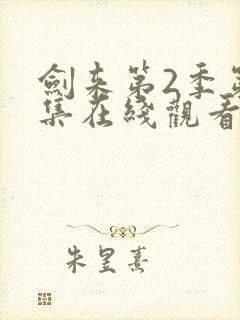 劍来第2季第
集在綫觀看
朱昱熹